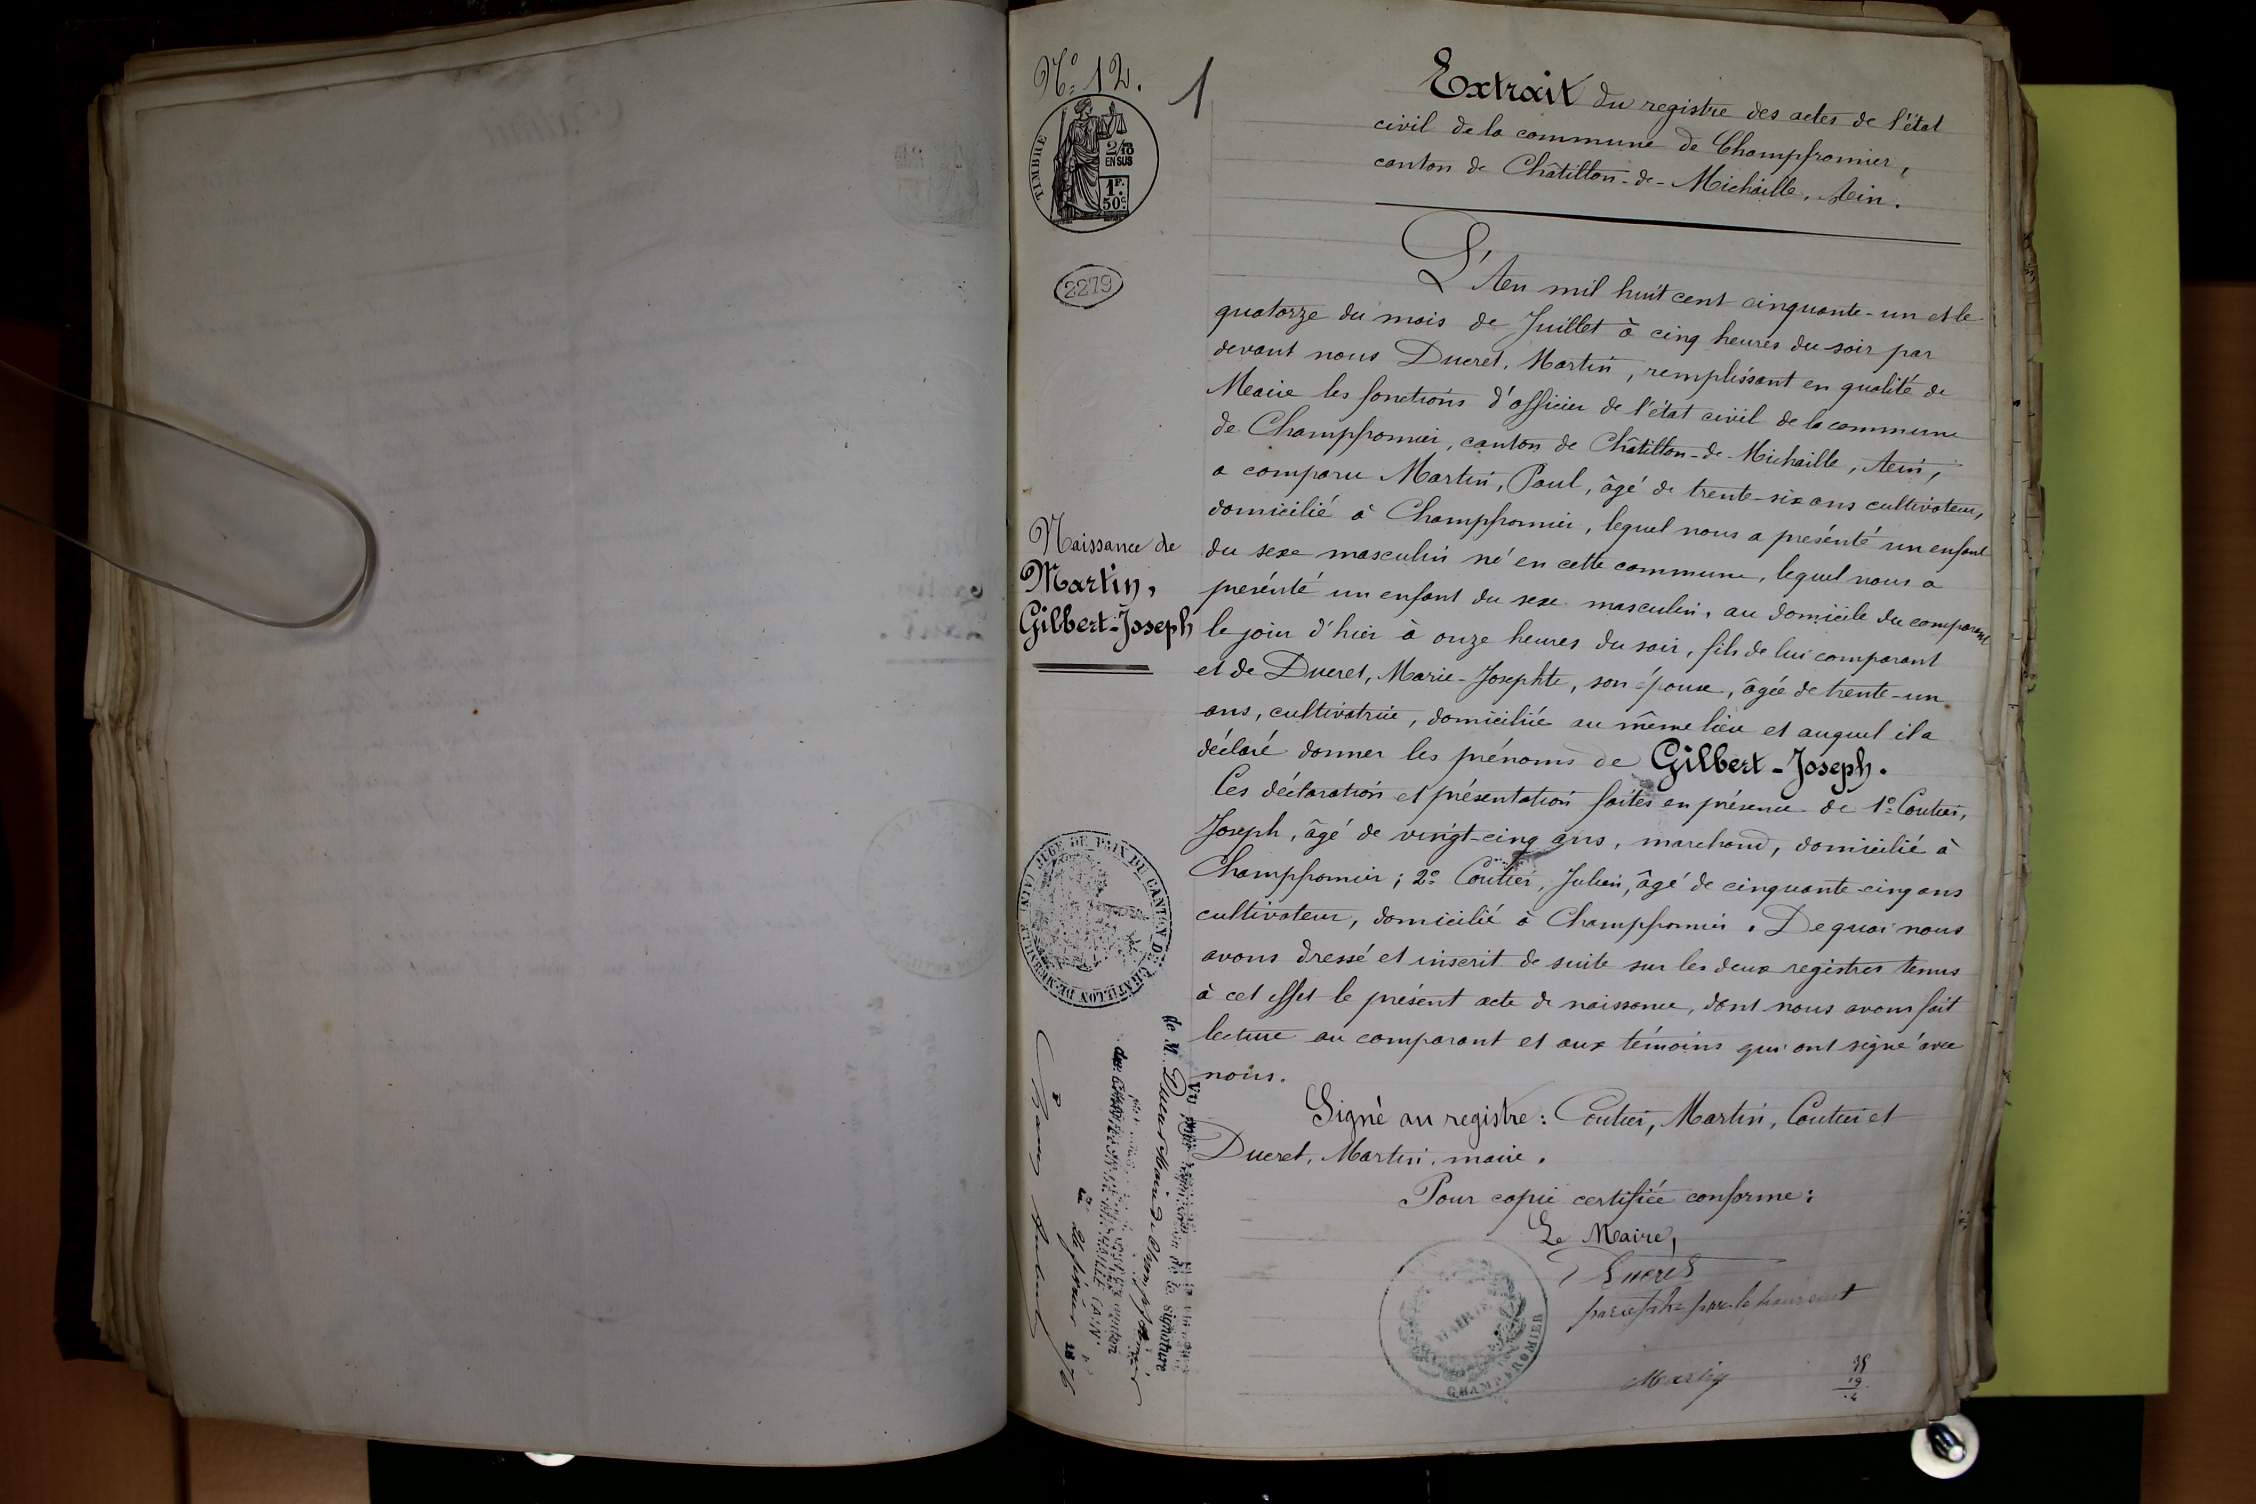 N° 12.
1
TIMBRE
2/10
EN SUS
1F.
50c.
2279
Extrait du registre des actes de l'état
civil de la commune de Champfromier,
canton de Châtillon-de-Michaille, Ain.
L'An mil huit cent cinquante-un et le
quatorze du mois de Juillet à cinq heures du soir par
devant nous Ducret, Martin, remplissant en qualité de
Maire les fonctions d'officier de l'état civil de la commune
de Champfromier, canton de Châtillon-de-Michaille, Ain,
a comparu Martin, Paul, âgé de trente-six ans cultivateur,
domicilié à Champfromier, lequel nous a présenté un enfant
du sexe masculin né en cette commune, lequel nous a
présenté un enfant du sexe masculin, au domicile du comparant
le jour d'hier à onze heures du soir, fils de lui comparant
et de Ducret, Marie-Josephte, son épouse, âgée de trente-un
ans, cultivatrice, domiciliée au même lieu et auquel il a
déclaré donner les prénoms de Gilbert-Joseph.
Ces déclaration et présentation faites en présence de 1° Coutier,
Joseph, âgé de vingt-cinq ans, marchand, domicilié à
Champfromier; 2° Coutier, Julien, âgé de cinquante-cinq ans
cultivateur, domicilié à Champfromier. De quoi nous
avons dressé et inscrit de suite sur les deux registres tenus
à cet effet le présent acte de naissance, dont nous avons fait
lecture au comparant et aux témoins qui ont signé avec
nous.
Signé au registre: Coutier, Martin, Coutier et
Ducret, Martin, maire.
Pour copie certifiée conforme:
Le Maire,
Ducret
MAIRIE
CHAMPFROMIER
Martin
Naissance de
Martin,
Gilbert-Joseph
JUGE DE PAIX DU CANTON DE CHATILLON-DE-MICHAILLE (AIN)
de la signature
de M. Ducret Maire de Champfromier
1876